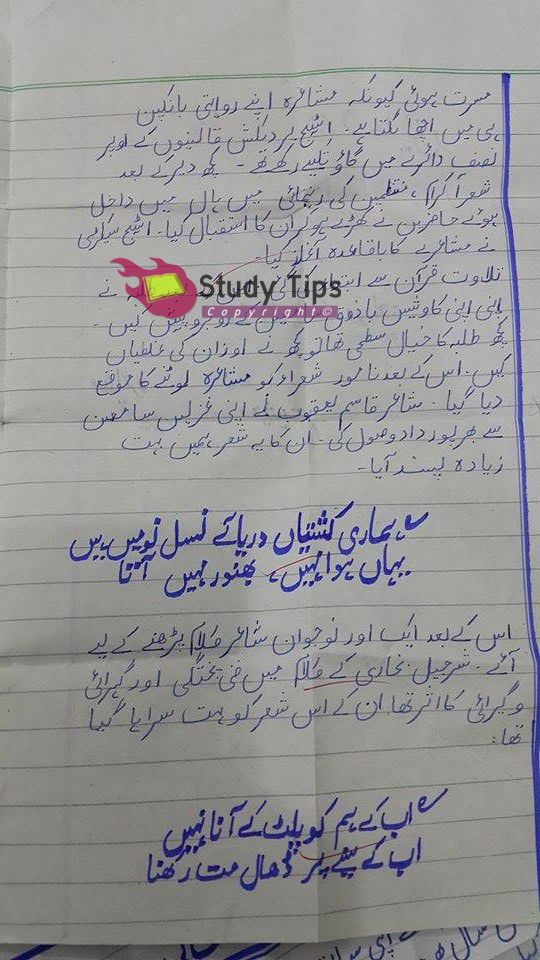 مسرت ہوئی کیونکہ مشاعرہ اپنے روایتی بانکپن
ہی میں اچھا لگتا ہے۔ اسٹیج پر دبکش قالینوں کے اوپر
نصف دائرے میں گاؤ تکیے رکھے تھے۔ کچھ دیر کے بعد
شعرآ کرام، منتظمین کی رہنمائی میں ہال میں داخل
ہوئے حاضرین نے کھڑے ہو کر ان کا استقبال کیا۔ اسٹیج سیکرٹری
نے مشاعرے کا باقاعدہ آغاز کیا۔
Study Tips
Copyright©
تلاوت قرآن سے نے
اپنی اپنی کاوشیں باذوق پیش کیں۔
کچھ طلبہ کا خیال سطحی تھا تو کچھ نے اوزان کی غلطیاں
کیں۔ اس کے بعد نامور شعراء کو مشاعرہ لوٹنے کا موقع
دیا گیا۔ شاعر قاسم یعقوب نے اپنی غزلیں سامعین
سے بھرپور داد وصول کی۔ ان کا یہ شعر ہمیں بہت
زیادہ پسند آیا۔
ہماری کشتیاں دریائے نسل نو میں ہیں
یہاں ہوا نہیں، بھنور نہیں آتا
اس کے بعد ایک اور نوجوان شاعر کلام پڑھنے کے لیے
آئے۔ شرجیل بخاری کے کلام میں فنی پختگی اور گہرائی
و گیرائی کا اثر تھا ان کے اس شعر کو بہت سراہا گیا
تھا:
اب کے ہم کو پلٹ کے آنا نہیں
اب کے سینے پر ڈھال مت رکھنا